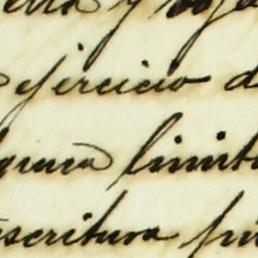 y
ejercicio d
guna limit
escritura pú